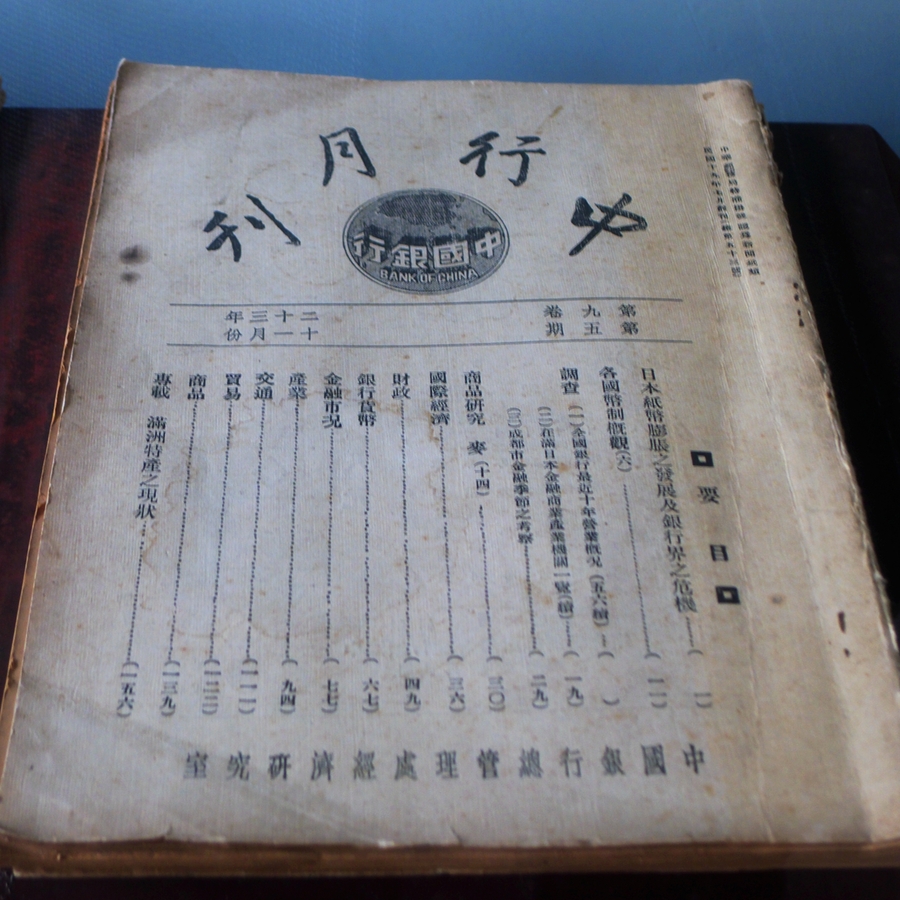 中行月刊
中國銀行
BANK OF CHINA
民國十九年七月創刊
第九卷
第五期
二十三年
十一月份
要目
日本紙幣膨脹之發展及銀行界之危機（一）
各國幣制概觀（六）（一一）
調查 （一）全國銀行最近十年營業概況（五六續）（ ）
（二）在滿日本金融商業產業機關一覽（續）（一九）
（三）成都市金融季節之考察（二九）
商品研究 麥（十四）（三〇）
國際經濟（三六）
財政（四九）
銀行貨幣（六七）
金融市況（七七）
產業（九四）
交通（一一一）
貿易（一二二）
商品（一三九）
專載 滿洲特產之現狀（一五六）
中國銀行總管理處經濟研究室